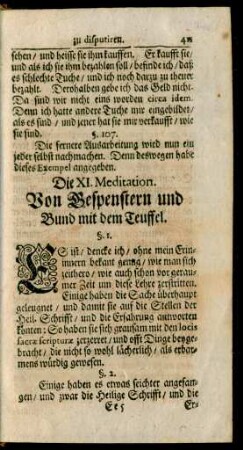 zu disputiren.
sehen / und heisse sie ihm kauffen. Er kaufft sie /
und als ich sie ihm bezahlen soll / befinde ich / daß
es schlechte Tuche / und ich noch darzu zu theuer
bezahlt. Derohalben gebe ich das Geld nicht.
Da sind wir nicht eins worden circa idem.
Denn ich hatte andere Tuche mir eingebildet /
als es sind / und jener hat sie mir verkaufft / wie
sie sind.
§. 107.
Die fernere Ausarbeitung wird nun ein
jeder selbst nachmachen. Denn deswegen habe
dieses Exempel angegeben.
Die XI. Meditation.
Von Gespenstern und
Bund mit dem Teuffel.
§. 1.
ES ist / dencke ich / ohne mein Erin-
nnern bekant genug / wie man sich
zeithero / wie auch schon vor gerau-
mer Zeit um diese Lehre zerstritten.
Einige haben die Sache überhaupt
geleugnet / und damit sie auf die Stellen der
Heil. Schrifft / und die Erfahrung antworten
könten: So haben sie sich grausam mit den locis
sacræ scripturæ zerzerret / und offt Dinge beyge-
bracht / die nicht so wohl lächerlich / als erbar-
mens würdig gewesen.
§. 2.
Einige haben es etwas seichter angefan-
gen / und zwar die Heilige Schrifft / und die
Ee 5 Er-